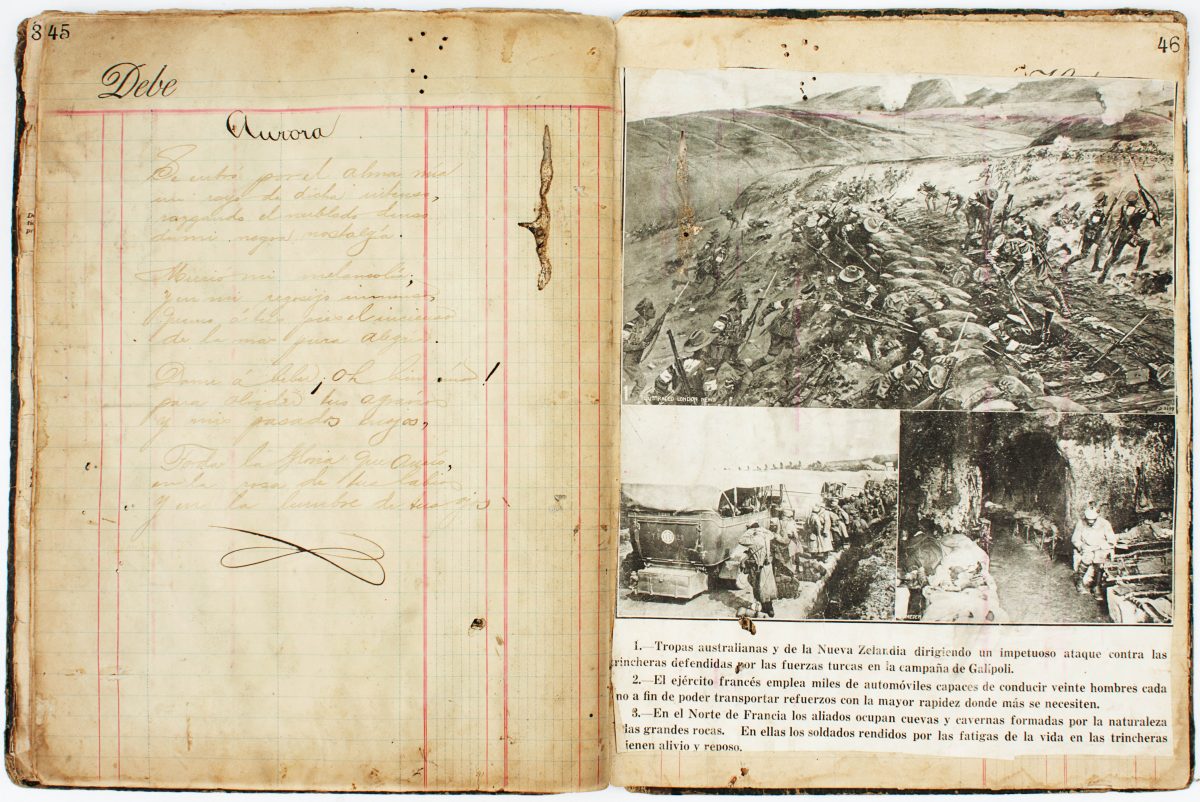 3 45
Debe
Aurora
Se entró por el alma mia
un rayo de dicha intensa,
razgando el nublado denso
de mi negra nostalgía.
Murió mi melancolía,
y en mi regosijo inmenso,
á tus pies el incienso
de la mas pura alegria.
Dame á beber, ¡oh bien mio!
para olvidar tus
y mis pasados enojos,
Toda la gloria que
en la rosa de tus labios
y en la lumbre de tus ojos
46
ILLUSTRATED LONDON NEWS
1.—Tropas australianas y de la Nueva Zelandia dirigiendo un impetuoso ataque contra las
trincheras defendidas por las fuerzas turcas en la campaña de Galípoli.
2.—El ejército francés emplea miles de automóviles capaces de conducir veinte hombres cada
no a fin de poder transportar refuerzos con la mayor rapidez donde más se necesiten.
3.—En el Norte de Francia los aliados ocupan cuevas y cavernas formadas por la naturaleza
las grandes rocas. En ellas los soldados rendidos por las fatigas de la vida en las trincheras
ienen alivio y reposo.